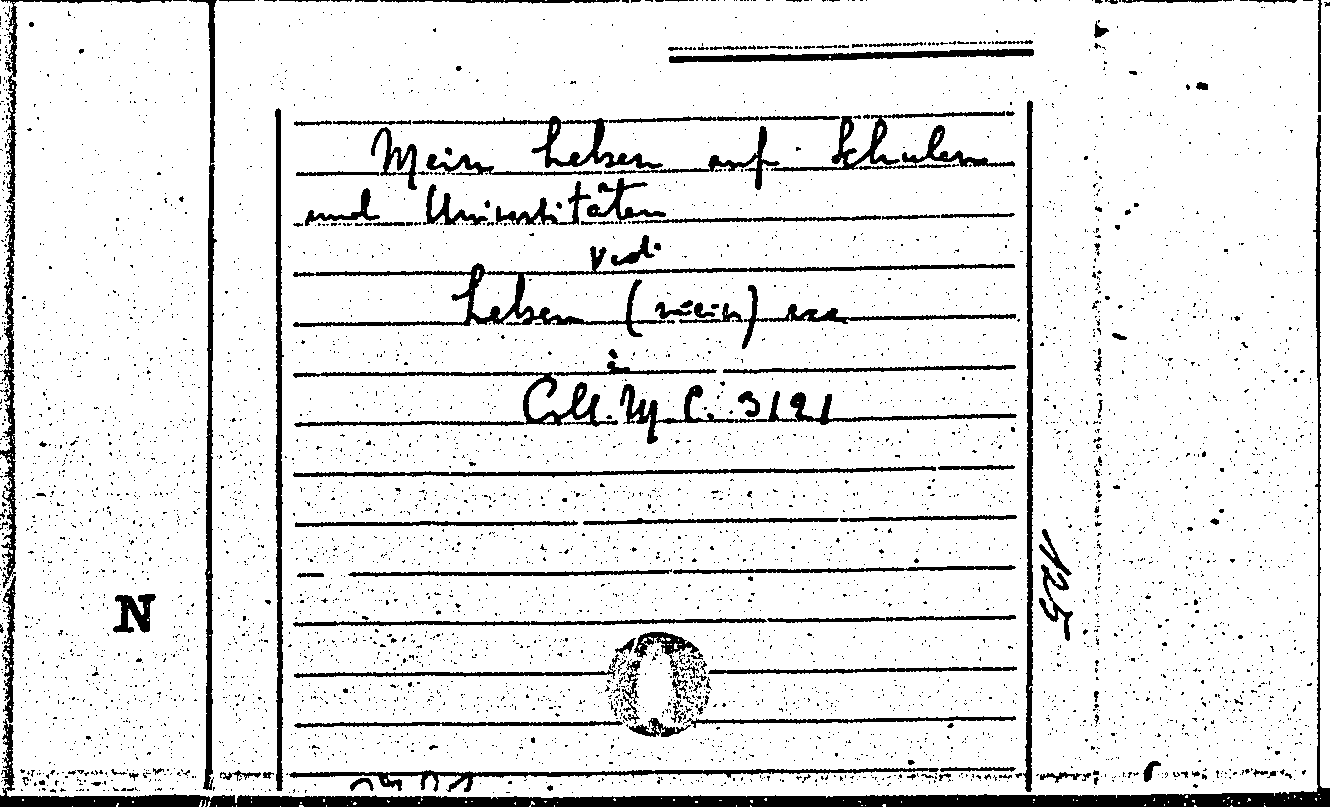 Mein Leben auf Schulen
und Universitäten
Vedi
Leben (mein) ecc
è
Coll. M C. 3121
N
125